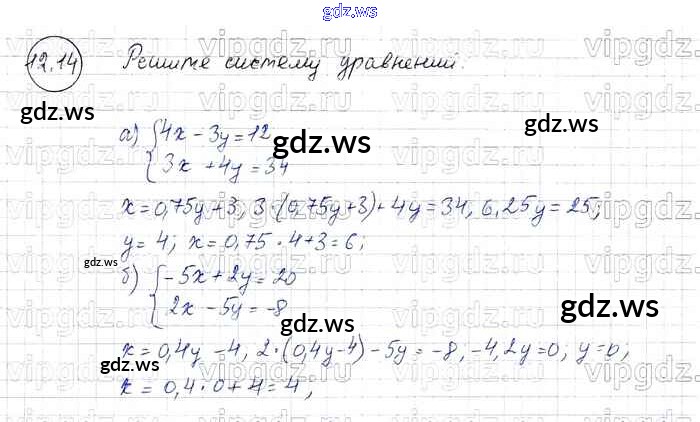 gdz.ws
12.14 Решите систему уравнений:
gdz.ws
а) {4x - 3y = 12
{3x + 4y = 34
gdz.ws
x = 0,75y + 3, 3·(0,75y + 3) + 4y = 34, 6,25y = 25;
y = 4; x = 0,75 · 4 + 3 = 6;
gdz.ws
б) {-5x + 2y = 20
{2x - 5y = -8
gdz.ws
gdz.ws
x = 0,4y - 4, 2·(0,4y - 4) - 5y = -8, -4,2y = 0; y = 0;
x = 0,4 · 0 + 4 = 4,
gdz.ws
vipgdz.ru